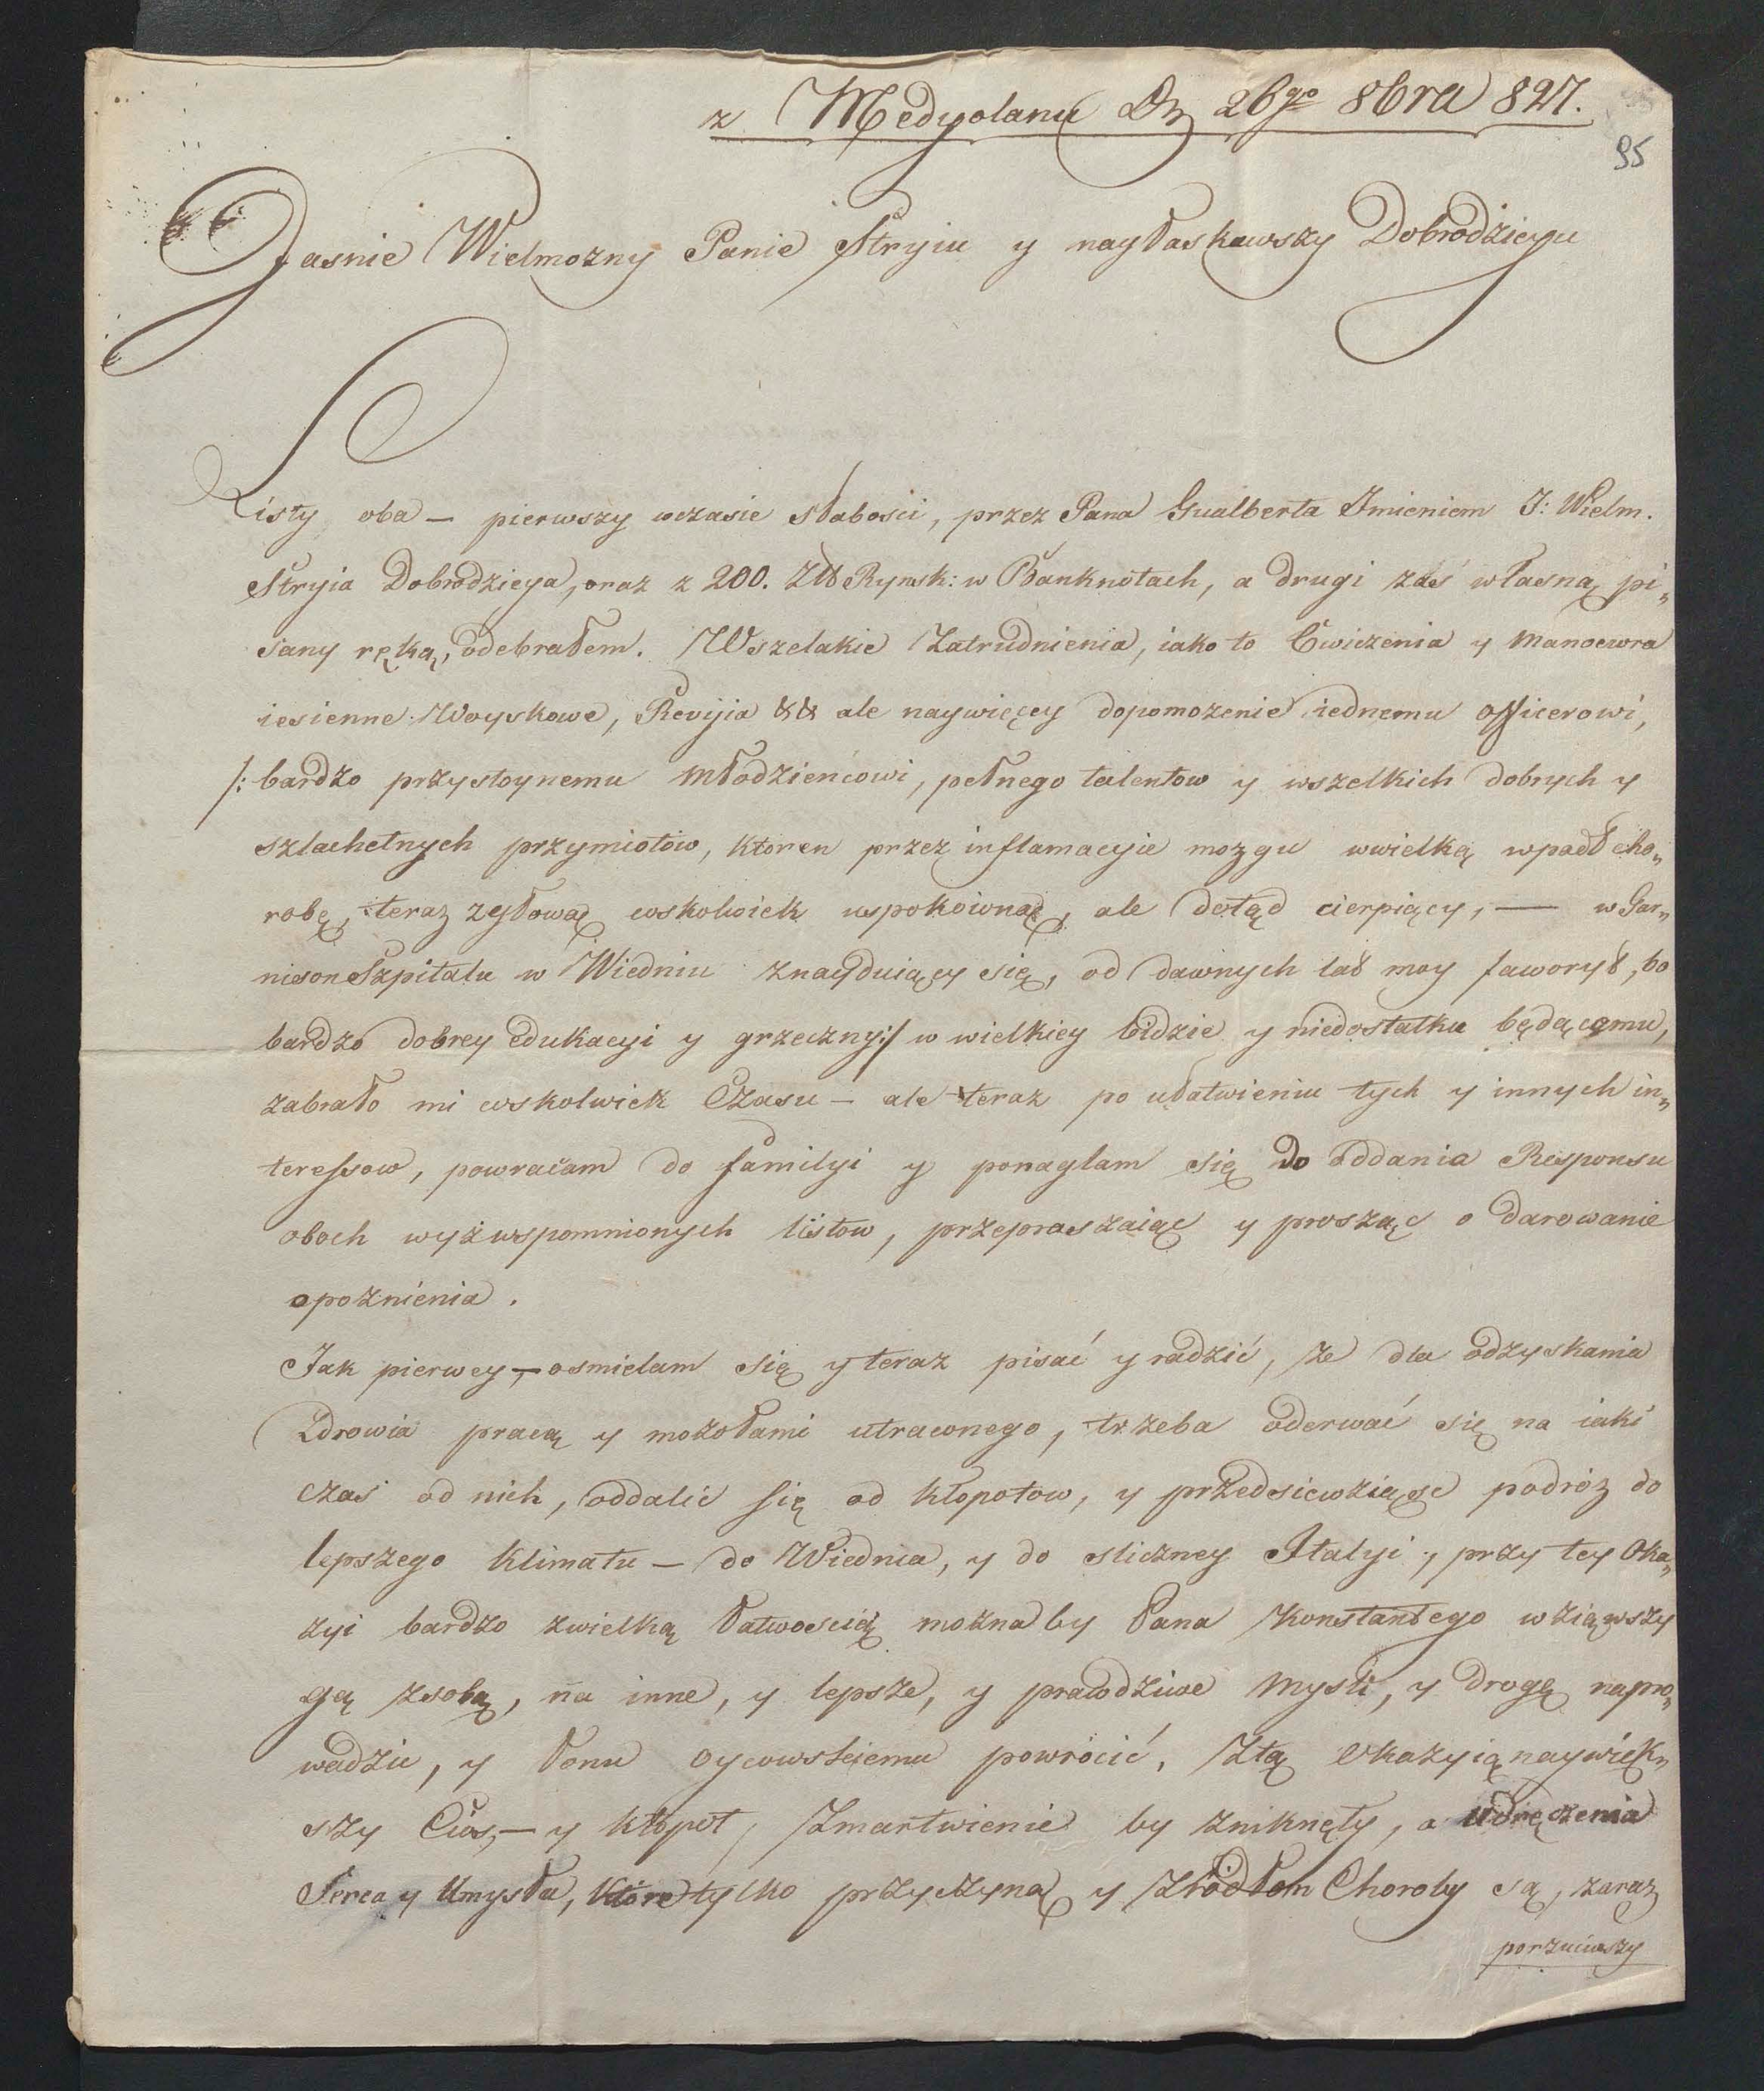 z Medyolanu Dn 26go 8bra 827.
95
Jasnie Wielmozny Panie Stryiu y nayłaskawszy Dobrodzieyu
Listy oba — pierwszy wczasie słabości, przez Pana Gualberta Imieniem J: Wielm.
Stryia Dobrodzieya, oraz z 200. Zł Rynsk: w Banknotach, a drugi zaś własną pi„
sany ręką, odebrałem. Wszelakie Zatrudnienia, iako to Cwiczenia y Manoewra
iesienne Woyskowe, Revijia && ale naywięcey dopomozenie iednemu officerowi,
/: bardzo przystoynemu Młodzieńcowi, pełnego talentow y wszelkich dobrych y
szlachetnych przymiotów, ktoren przez inflamacyie mozgu wwielką wpadł cho„
robę, teraz zgłową cośkolwiek uspokoioną, ale dotąd cierpiący, — w Gar„
nison Szpitalu w Wiedniu znayduiący się, od dawnych lat moy faworyt, bo
bardzo dobrey edukacyi y grzeczny :/ w wielkiey bidzie y niedostatku będącemu,
zabrało mi coskolwiek Czasu — ale teraz po ułatwieniu tych y innych in„
teressow, powracam do familyi y ponaglam się do oddania Responsu
oboch wyż wspomnionych listow, przepraszaiąc y prosząc o darowanie
opoznienia.
Jak pierwey, — osmielam się y teraz pisać y radzić, ze dla odzyskania
Zdrowia pracą y mozołami utraconego, trzeba oderwać się na iakiś
czas od nich, oddalic się od kłopotow, y przedsiewziąść podróz do
lepszego Klimatu — do Wiednia, y do sliczney Italyi, przy tey Oka„
zyi bardzo zwielką łatwością moznaby Pana Konstantego wziąwszy
gą zsobą, na inne, y lepsze, y prawdziwe mysli, y drogę napro„
wadzic, y łonu oycowskiemu powrócić, Ztą okazyią naywięk„
szy Cios, — y kłopot, Zmartwienie by zniknęły, a udręczenia
Serca y Umysłu, które tylko przyczyną y Zródłem Choroby są, zaraz
porzuciwszy